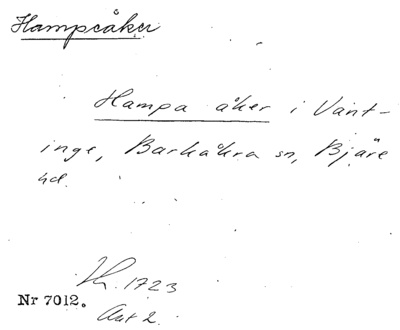 Hampsåker
Hampa åker i Vänt-
inge, Barkåkra sn, Bjäre
hd.
1723
Nr 7012.
Akt 2.